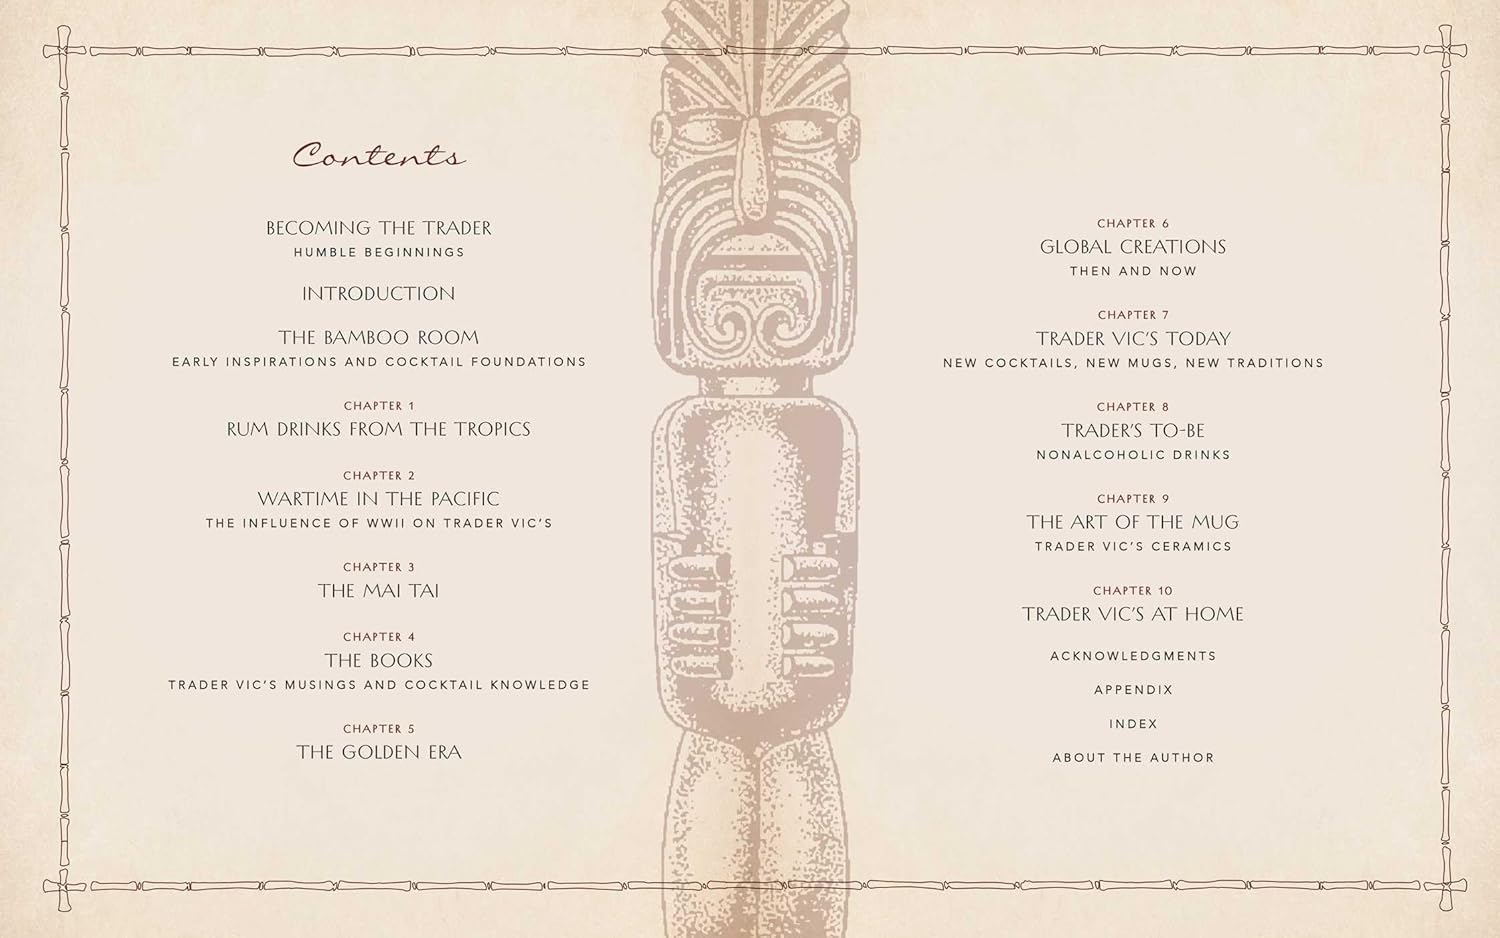 Contents
BECOMING THE TRADER
HUMBLE BEGINNINGS
INTRODUCTION
THE BAMBOO ROOM
EARLY INSPIRATIONS AND COCKTAIL FOUNDATIONS
CHAPTER 1
RUM DRINKS FROM THE TROPICS
CHAPTER 2
WARTIME IN THE PACIFIC
THE INFLUENCE OF WWII ON TRADER VIC'S
CHAPTER 3
THE MAI TAI
CHAPTER 4
THE BOOKS
TRADER VIC'S MUSINGS AND COCKTAIL KNOWLEDGE
CHAPTER 5
THE GOLDEN ERA
CHAPTER 6
GLOBAL CREATIONS
THEN AND NOW
CHAPTER 7
TRADER VIC'S TODAY
NEW COCKTAILS, NEW MUGS, NEW TRADITIONS
CHAPTER 8
TRADER'S TO-BE
NONALCOHOLIC DRINKS
CHAPTER 9
THE ART OF THE MUG
TRADER VIC'S CERAMICS
CHAPTER 10
TRADER VIC'S AT HOME
ACKNOWLEDGMENTS
APPENDIX
INDEX
ABOUT THE AUTHOR